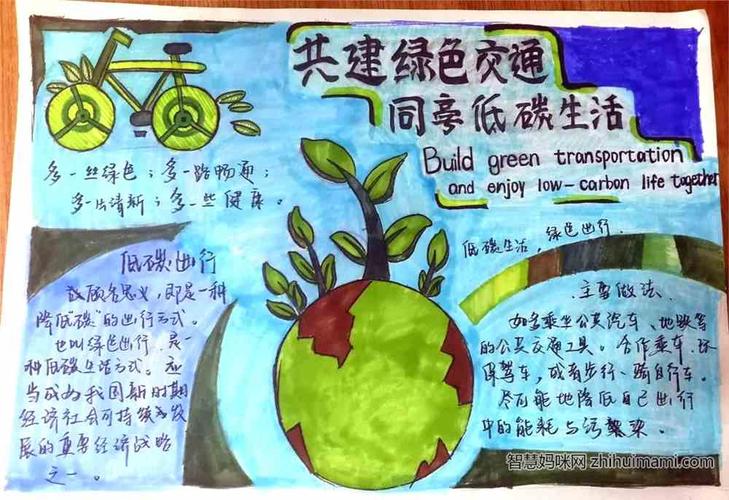 共建绿色交通
同享低碳生活
Build green transportation
and enjoy low-carbon life together
多一丝绿色；多一路畅通；
多一片清新；多一些健康。
低碳出行
故顾名思义，即是一种
降低"碳"的出行方式。
也叫绿色出行，是一
种低碳生活方式。应
当成为我国新时期
经济社会可持续发
展的重要经济战略
之一。
低碳生活，绿色出行．
主要做法．
如多乘坐公共汽车、地铁等
的公共交通工具。合作乘车，环
保驾车，或者步行、骑自行车。
尽可能地降低自己出行
中的能耗与污染。
智慧妈咪网 zhihuimami.com